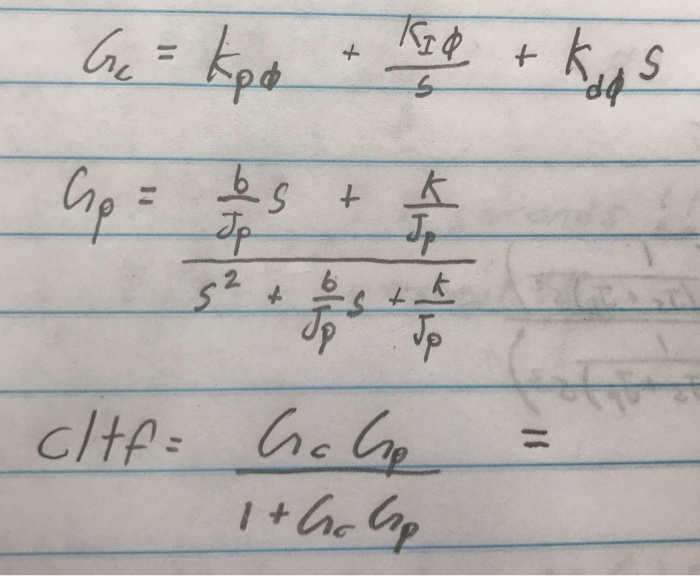 G_c = k_pϕ + k_Iϕ / s + k_dϕ s
G_p = (b/J_p s + k/J_p) / (s² + b/J_p s + k/J_p)
cltf = G_c G_p / (1 + G_c G_p) =